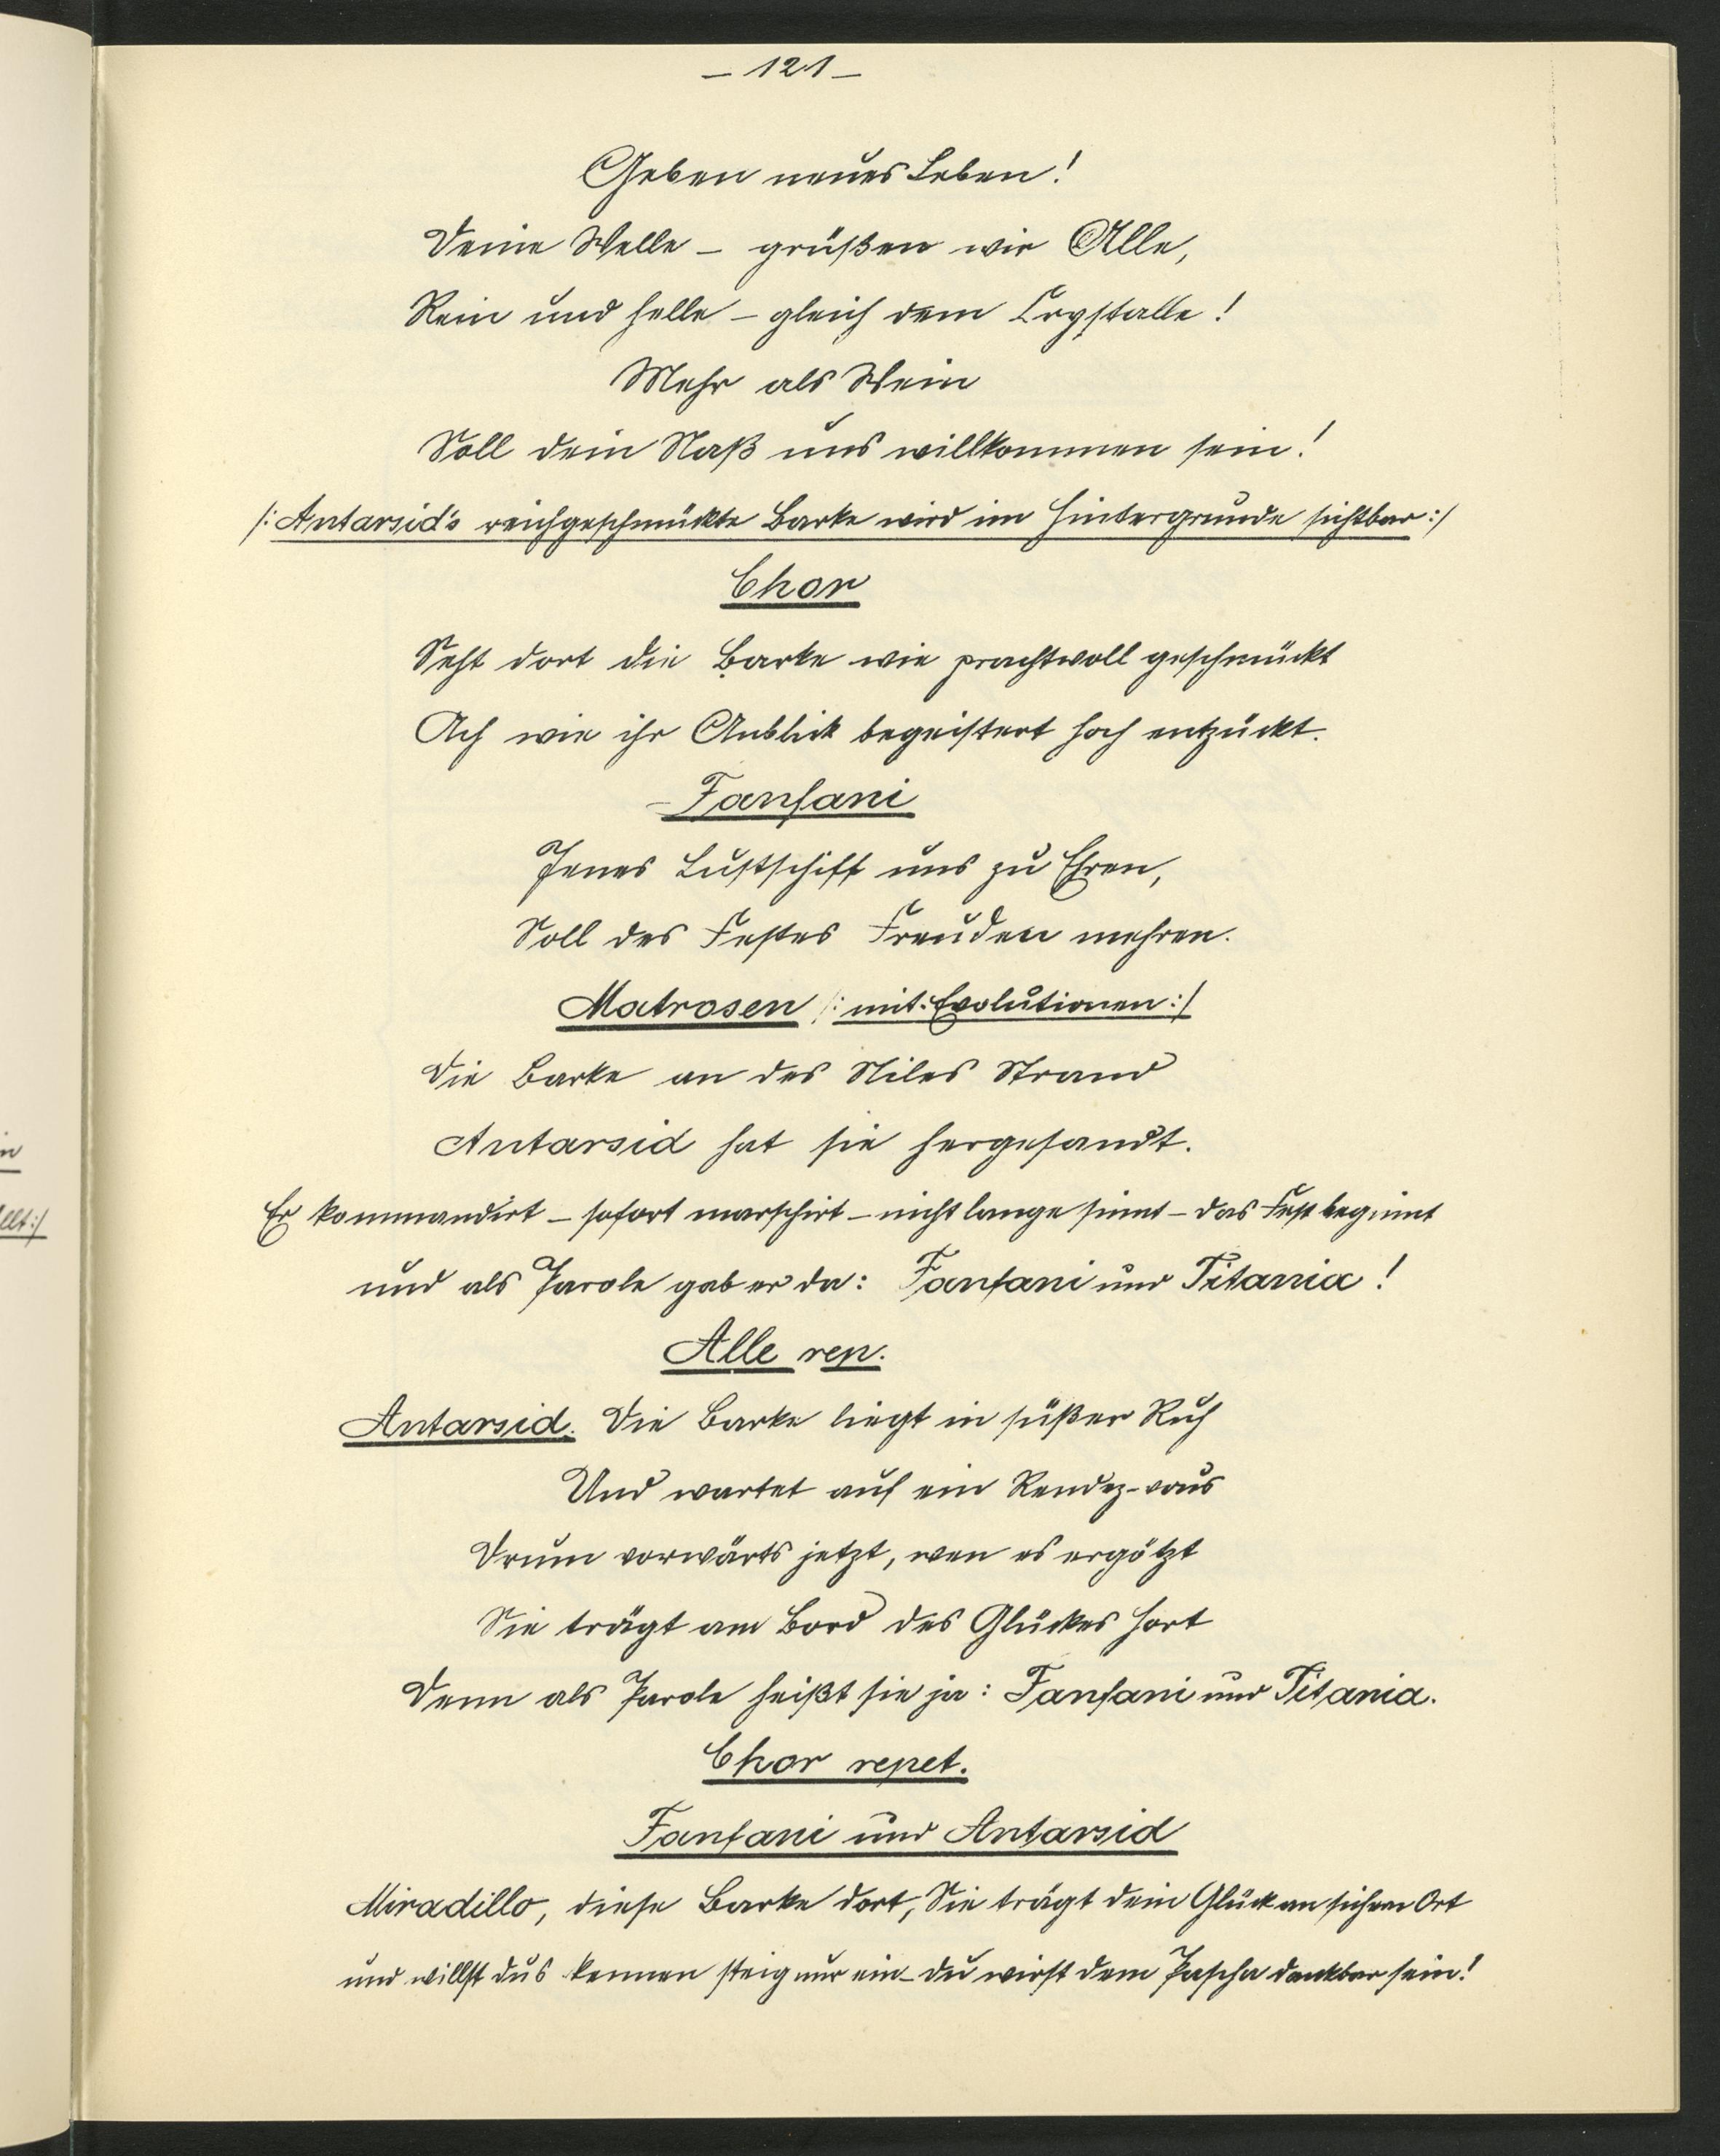 – 121 –
Geben neues Leben!
Deine Welle – grüßen wir Alle,
Rein und helle – gleich dem Crystalle!
Mehr als Wein
Soll dein Naß uns willkommen sein!
/: Antarsid's reichgeschmückte Barke wird im Hintergrunde sichtbar :/
Chor
Seht dort die Barke wie prachtvoll geschmückt
Ach wie ihr Anblick begeistert hoch entzückt.
Fanfani
Jenes Lustschiff uns zu Ehren,
Soll des Festes Freuden mehren.
Matrosen /: mit Evolutionen :/
Die Barke an des Niles Strand
Antarsid hat sie hergesandt.
Er kommandirt – sofort marschirt – nicht lange sinnt – das Fest beginnt
und als Parole gab er da: Fanfani und Titania!
Alle rep.
Antarsid. Die Barke liegt in süßer Ruh
Und wartet auf ein Rendez-vous
Drum vorwärts jetzt, wen es ergötzt
Sie trägt am Bord des Glückes Hort
Denn als Parole heißt sie ja: Fanfani und Titania.
Chor repet.
Fanfani und Antarsid
Miradillo, diese Barke dort, Sie trägt dein Glück an sichren Ort
und willst dus kennen steig nur ein – du wirst dem Pascha dankbar sein!